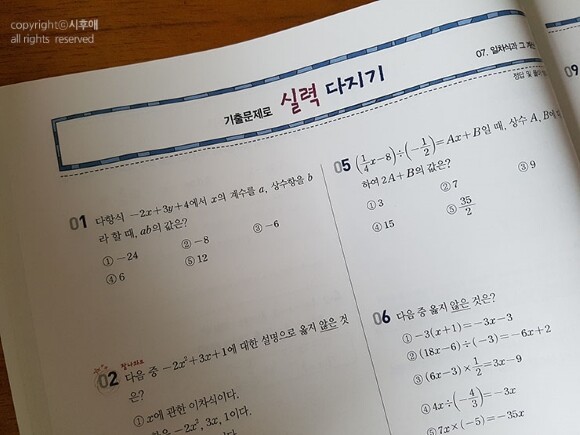 copyrightⓒ시후애
all rights reserved
기출문제로 실력 다지기
07. 일차식과 그 계산
정답 및 풀이
01 다항식 -2x+3y+4에서 x의 계수를 a, 상수항을 b
라 할 때, ab의 값은?
① -24 ② -8 ③ -6
④ 6 ⑤ 12
02 다음 중 -2x²+3x+1에 대한 설명으로 옳지 않은 것
은?
① x에 관한 이차식이다.
-2x², 3x, 1이다.
05 (1/4x-8)÷(-1/2)=Ax+B일 때, 상수 A, B에
하여 2A+B의 값은?
① 3 ② 7 ③ 9
④ 15 ⑤ 35/2
06 다음 중 옳지 않은 것은?
① -3(x+1)=-3x-3
② (18x-6)÷(-3)=-6x+2
③ (6x-3)×1/2=3x-9
④ 4x÷(-4/3)=-3x
⑤ 7x×(-5)=-35x
09